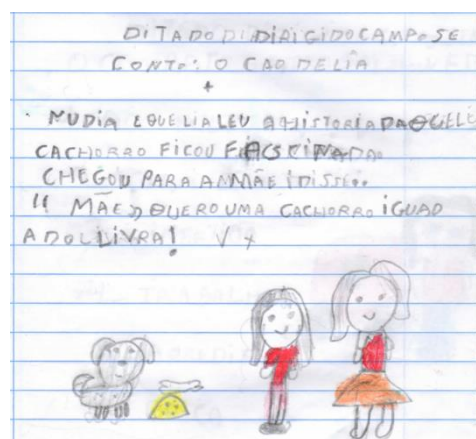 DITADO DIDIRIGIDO CAMPOSE
CONTO: O CAO DE LIA
NUDIA LOUE LIA LEU A HISTORIA DAQUELE
CACHORRO FICOU FASCINADA
CHEGOU PARA AMMÃE IDISSE:
MÃE QUERO UMA CACHORRO IGUAD
ADOLLIVRA!